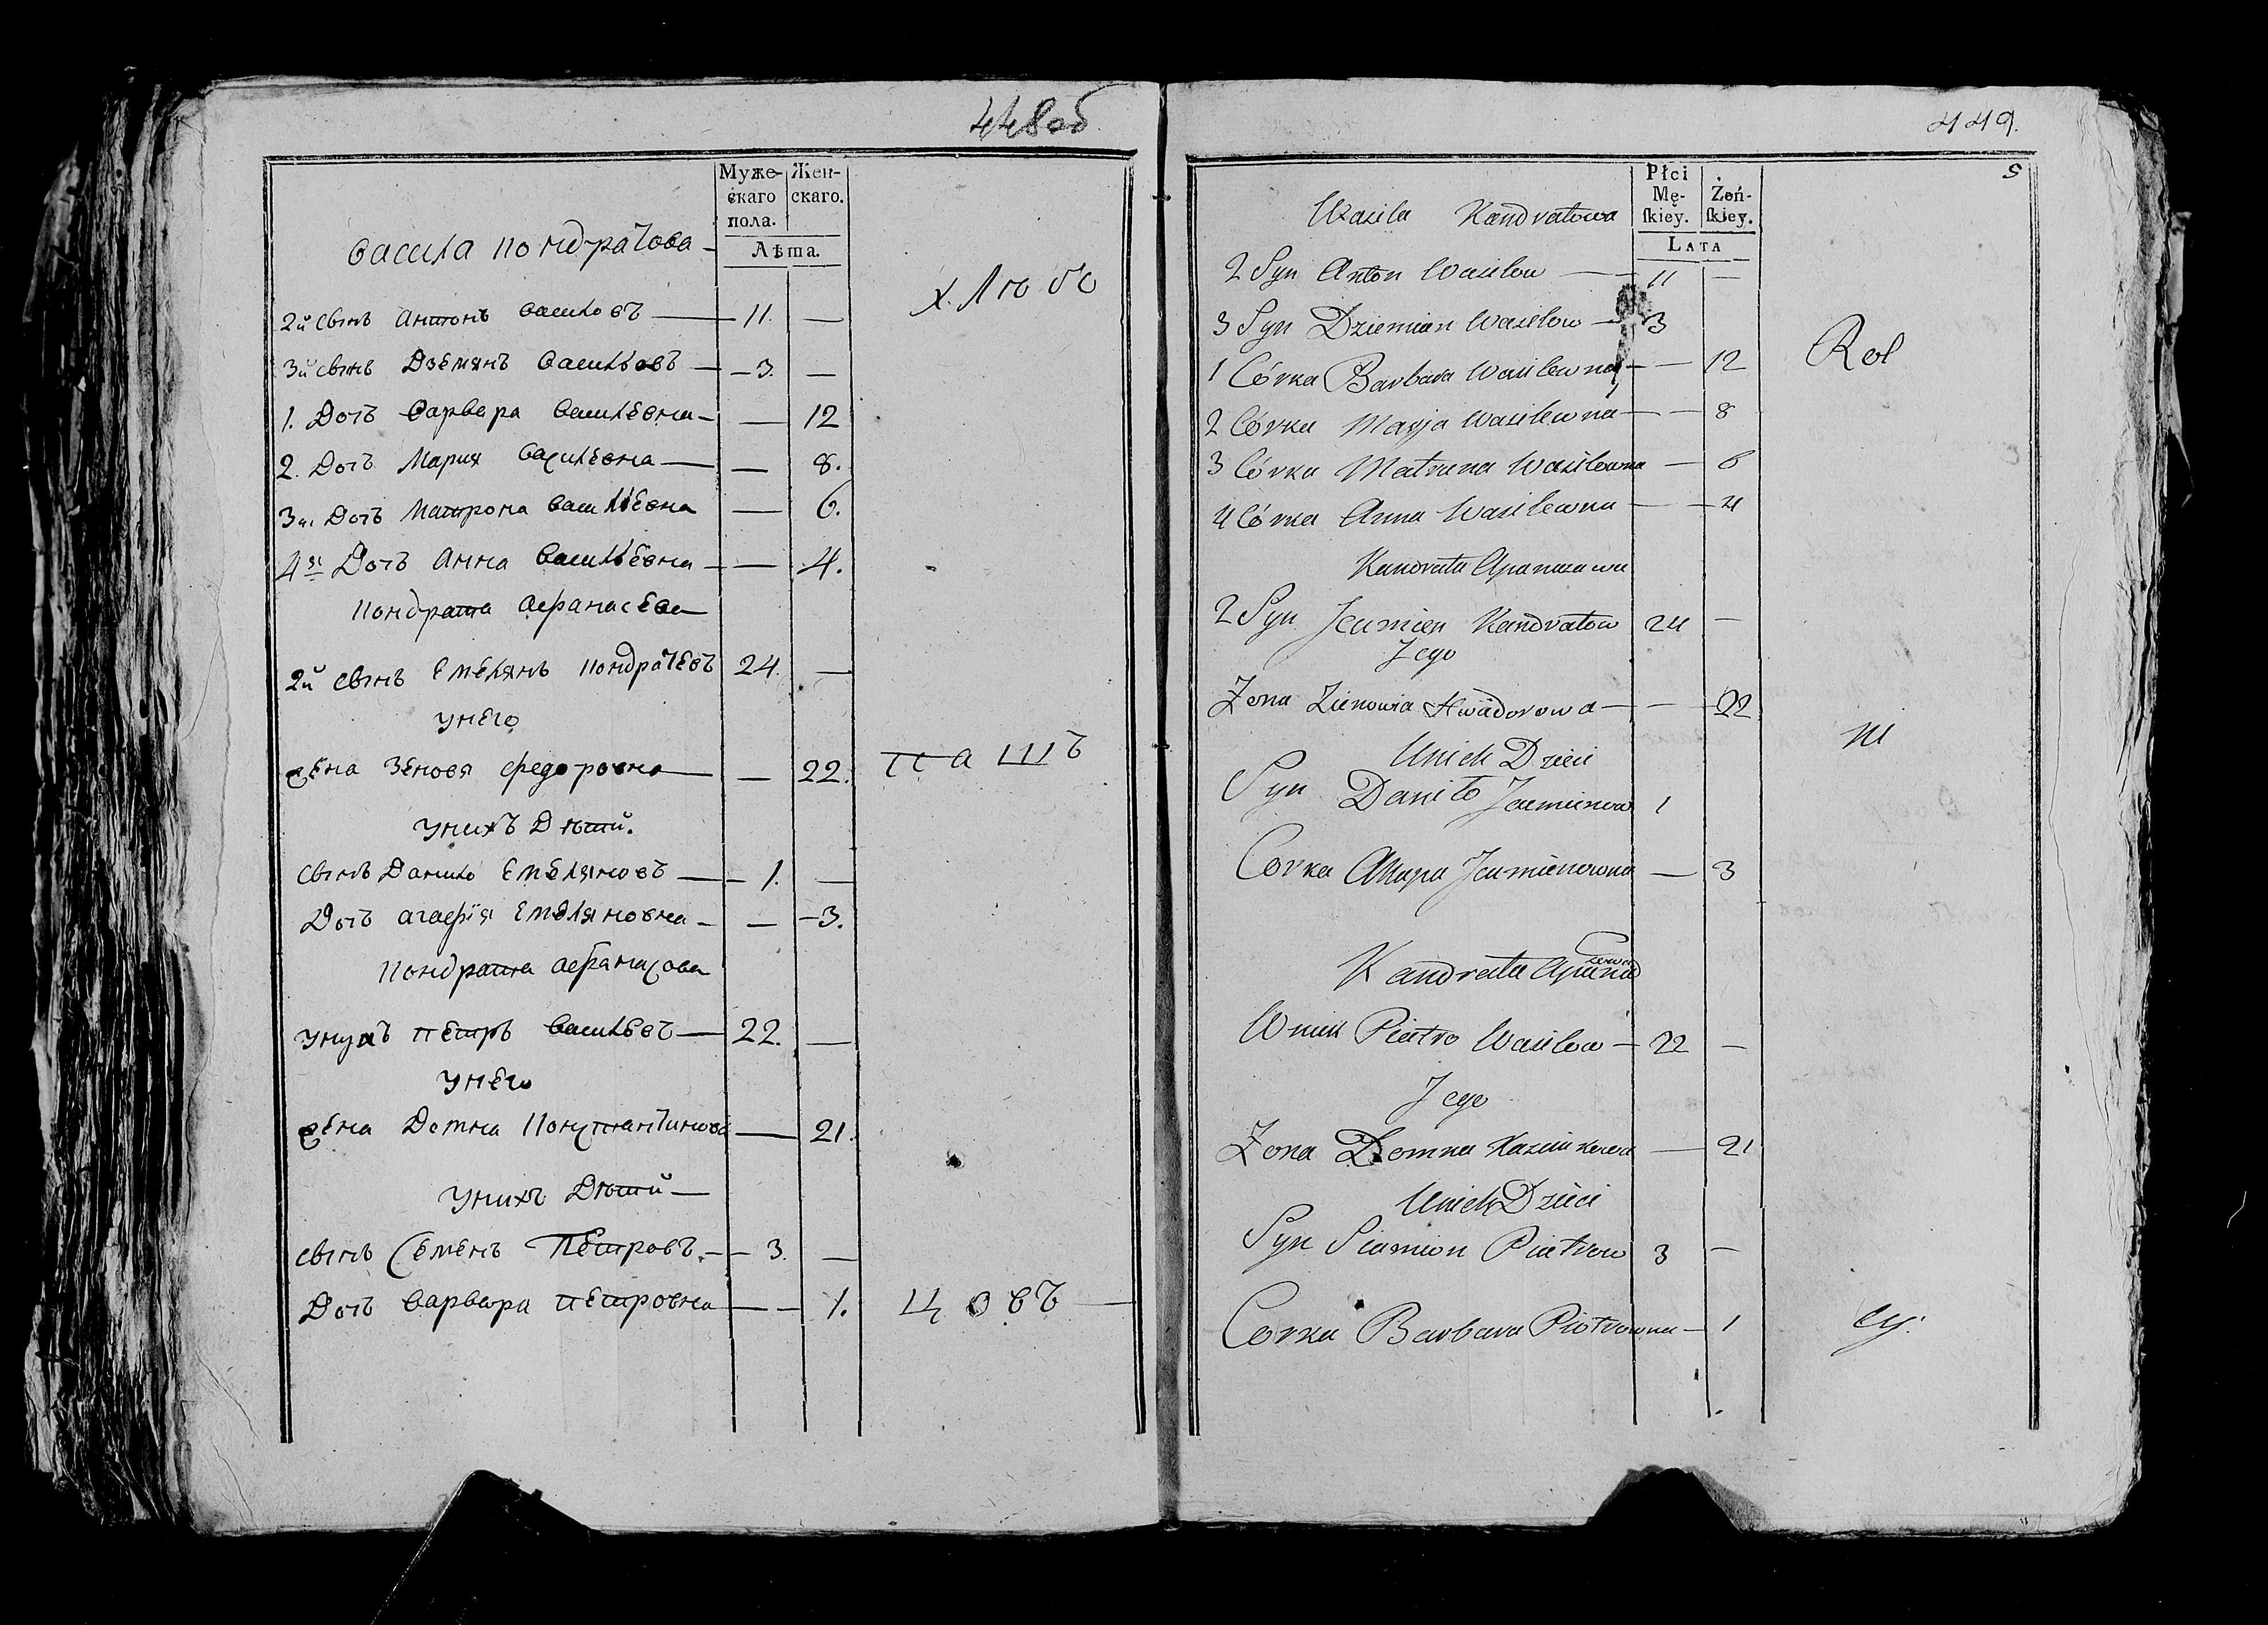 448об
Муже-
скаго
пола.
Жен-
скаго.
Лѣта.
Васила Кондратова
2й Сынъ Антонъ Василовъ — 11. —
3й Сынъ Дзѣмянъ Васильевъ — 3. —
1. Дочь Варвара Васильевна — — 12
2. Дочь Мария Васильевна — — 8.
3я Дочь Матрона Васильевна — 6.
4я Дочь Анна Васильевна — — 4.
Кондрата Афанасева
2й Сынъ Емельянъ Кондратьевъ 24. —
у него
жена Зеновя Федоровна — — 22.
у нихъ Дѣти.
Сынъ Данило Емельяновъ — 1. —
Дочь Агафія Емеляновна — — 3.
Кондрата Афанасова
унукъ Петръ Васильевъ — 22. —
у него
жена Домна Константинова — 21.
у нихъ Дѣти —
Сынъ Семенъ Петровъ — 3. —
Дочь Варвара Петровна — — 1.
хлѣбо
па шъ
цовъ —
449.
5
Płci
Mę-
skiey.
Żeń-
skiey.
LATA
Wasila Kandratowa
2 Syn Anton Wasilow — 11 —
3 Syn Dziemian Wasilow — 3
1 Córka Barbara Wasilewna — — 12
2 Córka Marja Wasilewna — — 8
3 Córka Matruna Wasilewna — 6
4 Córka Anna Wasilewna — — 4
Kandrata Apanasawa
2 Syn Jeamien Kandratow 24 —
Jego
Zona Zienowia Hwadorowa — — 22
U nich Dzieci
Syn Daniło Jeamienow 1
Corka Ahapa Jeamienowna — 3
Kandrata Apanazewa
Wnuk Pietro Wasilow — 22 —
Jego
Zona Domna — 21
U nich Dzieci
Syn Siamion Pietrow 3 —
Corka Barbara Piotrowna — 1
Rol
ni
cy.